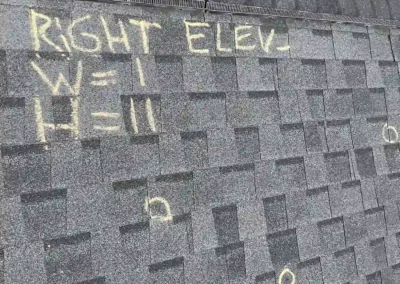 RIGHT ELEV-
W = 1
H = 11